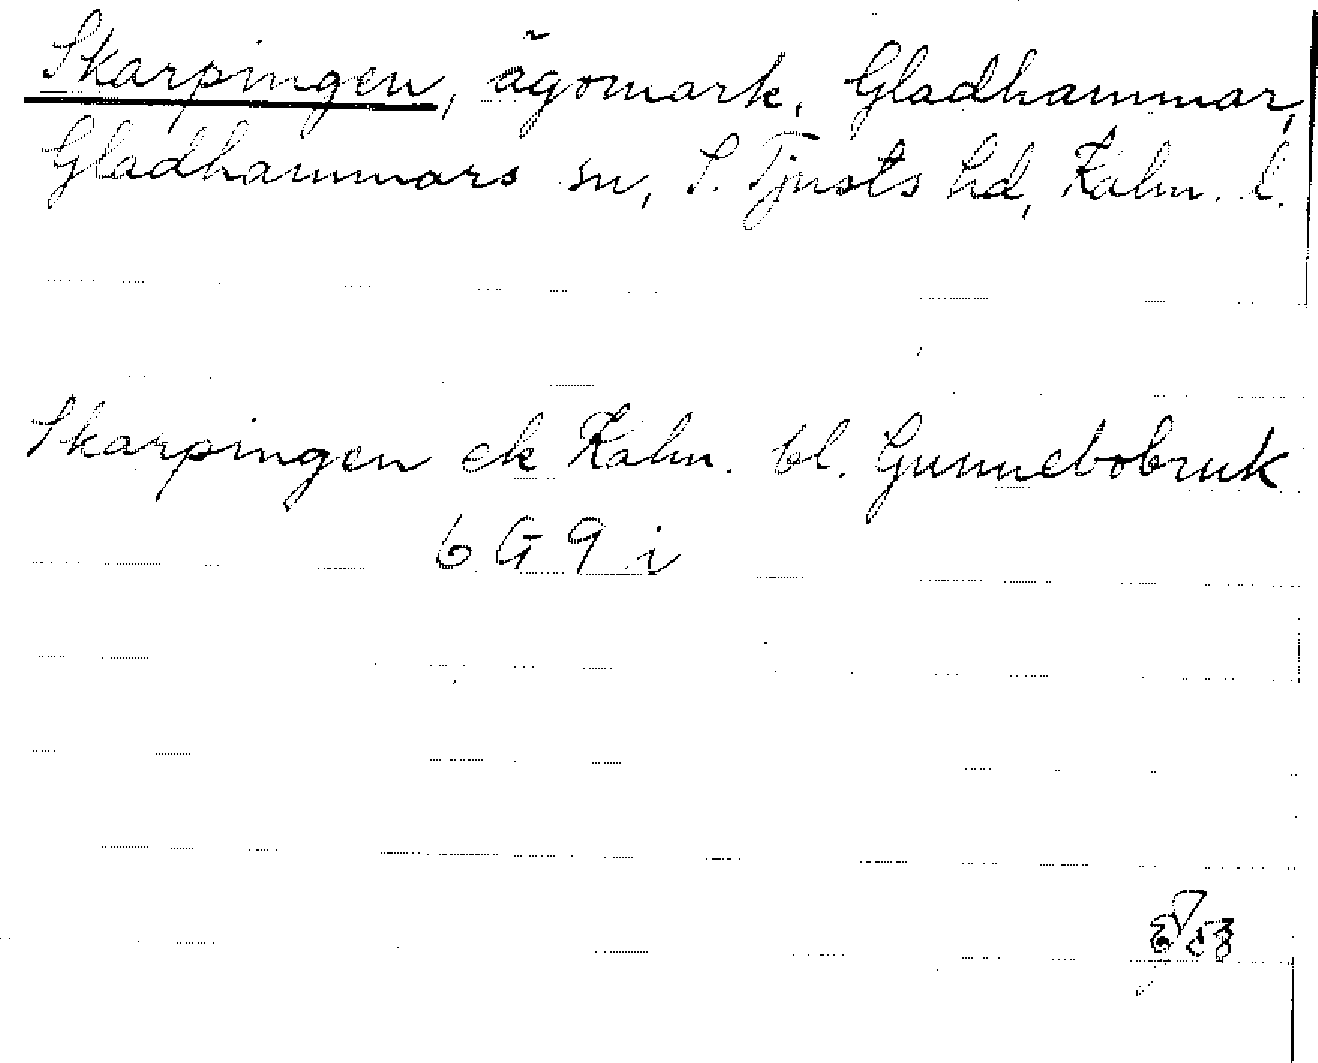 Skarpingen, ägomark, Gladhammar,
Gladhammars sn, S. Tjusts hd, Kalm. l.
Skarpingen ek Kalm. bl. Gunnebobruk
6 G 9 i